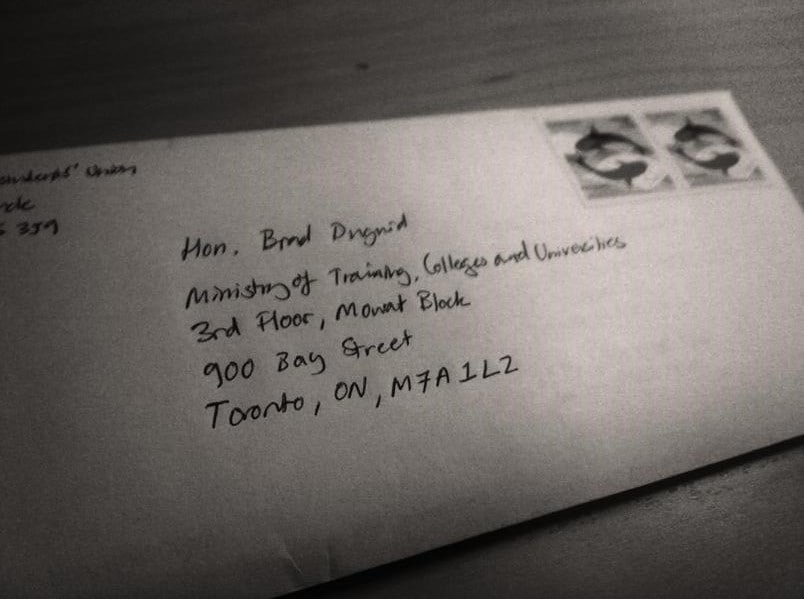 Students' Union
3J9
Hon. Brad Duguid
Ministry of Training, Colleges and Universities
3rd Floor, Mowat Block
900 Bay Street
Toronto, ON, M7A 1L2